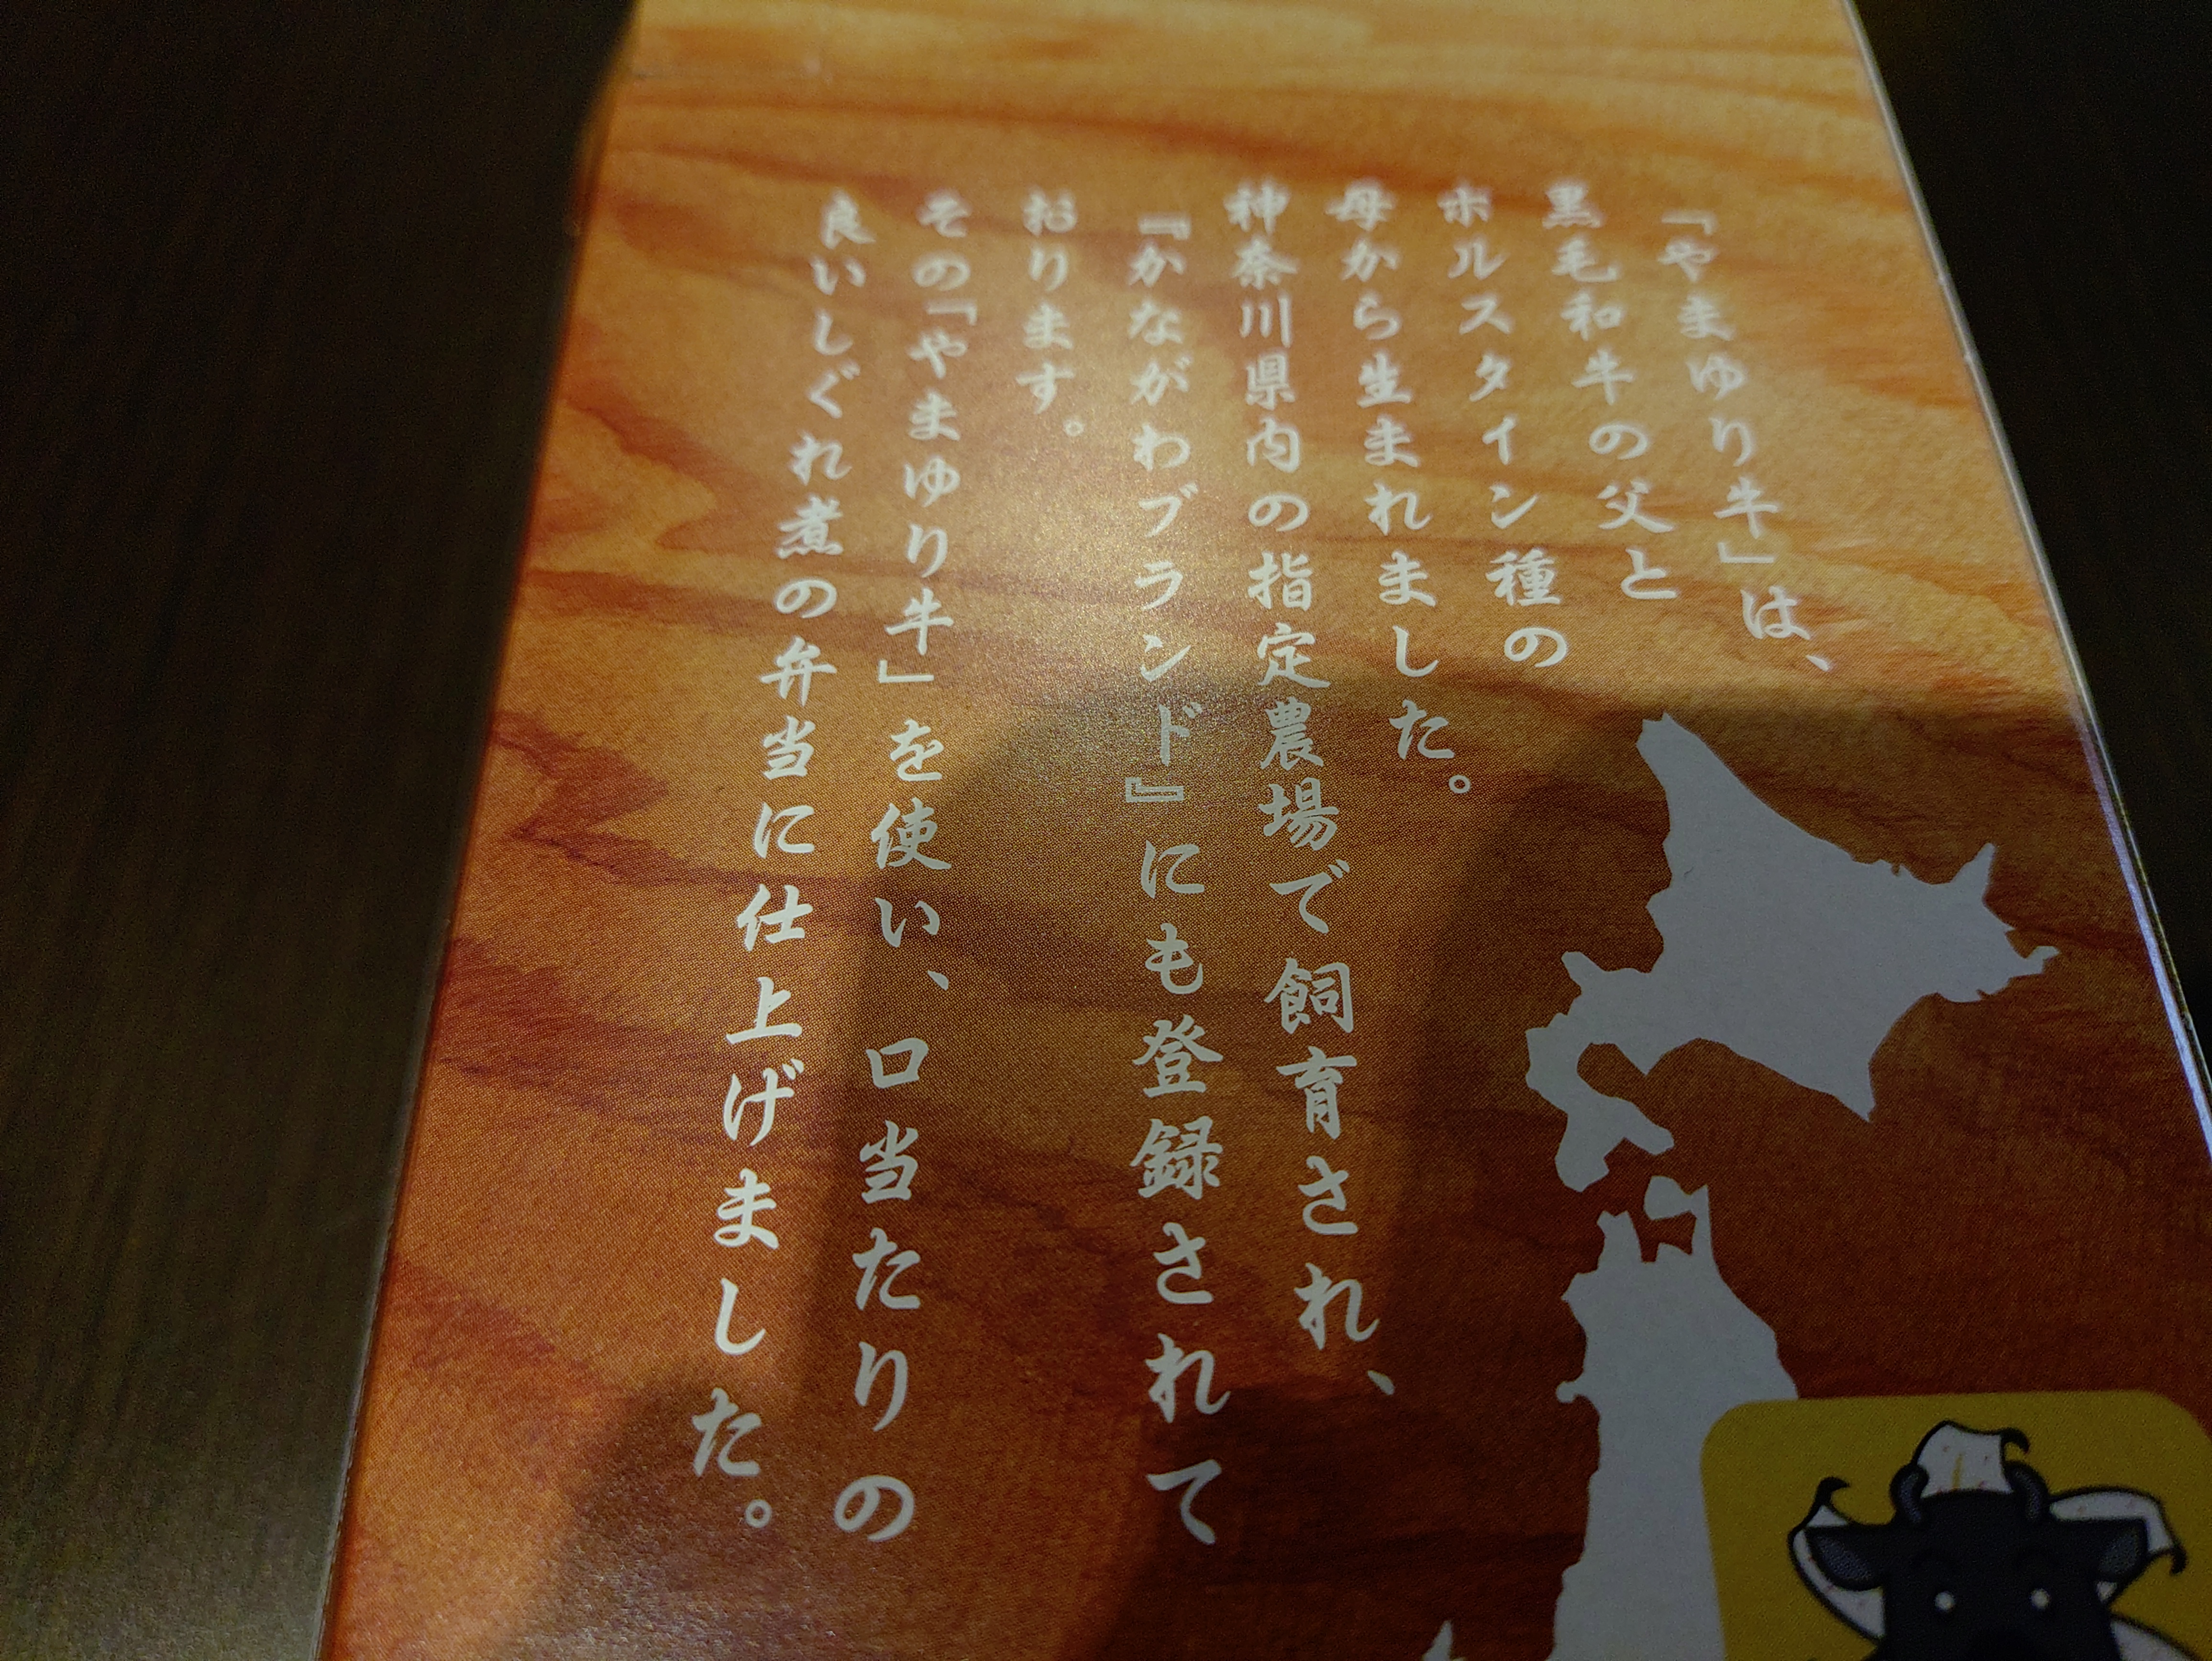 「やまゆり牛」は、
黒毛和牛の父と
ホルスタイン種の
母から生まれました。
神奈川県内の指定農場で飼育され、
『かながわブランド』にも登録されて
おります。
その「やまゆり牛」を使い、口当たりの
良いしぐれ煮の弁当に仕上げました。